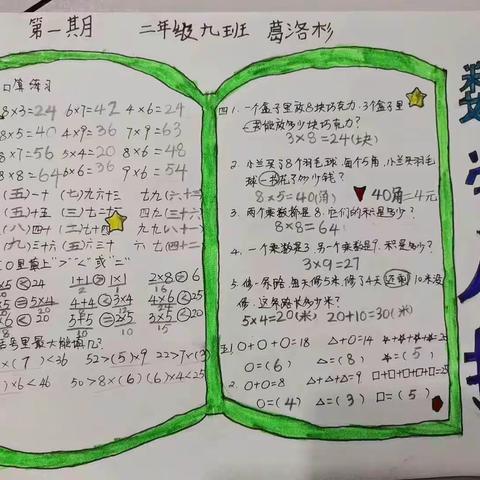 第一期月 二年级九班 葛洛杉
口算练习
8×3=24 6×7=42 4×6=24
8×5=40 4×9=36 7×9=63
8×7=56 5×4=20 8×6=48
8×8=64 6×6=36 9×6=54
(五)一十 (七)九六十三 七九(六十三)
(五)十五 (三)七二十一 四六(二十四)
(八)四十 (二)七十四 九九(八十一)
(九)三十六 (五)六三十 六七(四十二)
○里填上">""<"或"="
<24 1+1 > 1×1 2×8 > 6
5×4 4+4 < 3×4 4×6 < 25
<20 5+5 = 2×5 3×5 < 20
括号里最大能填几?
×(7)<36 52>(5)×9 22>7×(3)
)×6<46 50>8×(6) (6)×4<25
四1. 一个盒子里放8块巧克力,3个盒子里
一共能放多少块巧克力?
3×8=24(块)
2. 小兰买了8个羽毛球,每个5角,小兰买羽毛
球一共花了多少钱?
8×5=40(角) 40角=4元
3. 两个乘数都是8,它们的积是多少?
8×8=64
4. 一个乘数是3,另一个乘数是9,积是多少?
3×9=27
5. 修一条路,每天修5米,修了4天,还剩10米没
修,这条路长多少米?
5×4=20(米) 20+10=30(米)
五1. ○+○+○=18 △+○=14
○=(6) △=(8) =(5)
2. ○+○=8 △+△+△=9 □+□+□+□+□=25
○=(4) △=(3) □=(5)
数学